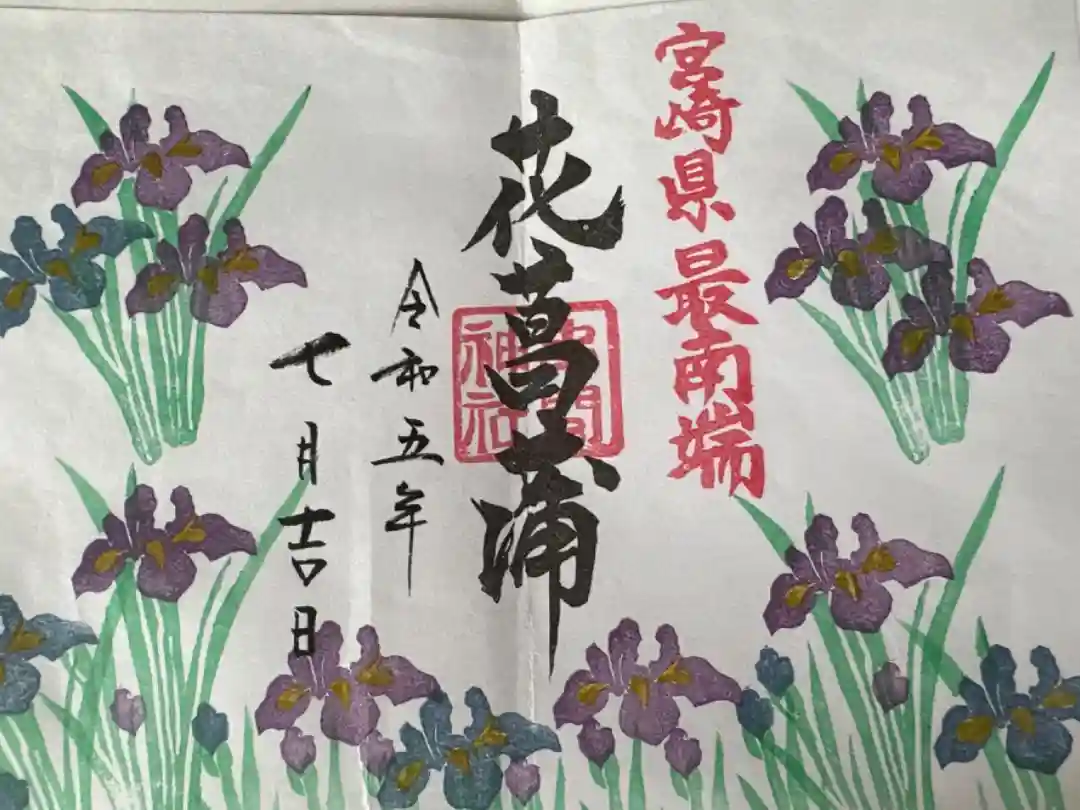 宮崎県最南端
花菖蒲
神社
令和五年
七月吉日